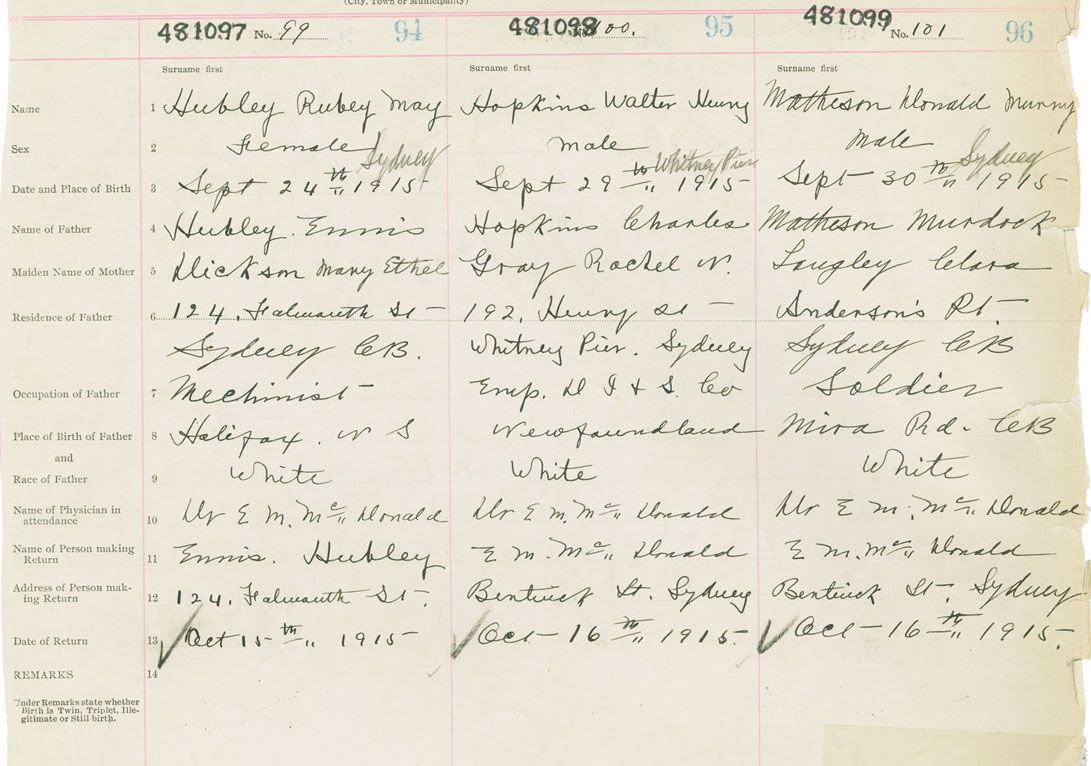 (City, Town or Municipality)
481097 No. 99 94 481098 100. 95 481099 No. 101 96
Surname first Surname first Surname first
Name 1 Hubley Rubey May Hopkins Walter Henry Matheson Donald Murray
Sex 2 Female Male Male
Sydney Whitney Pier Sydney
Date and Place of Birth 3 Sept 24th 1915 Sept 29th 1915 Sept 30th 1915
Name of Father 4 Hubley. Ennis Hopkins Charles Matheson Murdock
Maiden Name of Mother 5 Dickson Mary Ethel Gray Rachel N. Langley Clara
Residence of Father 6 124. Falmouth St 192. Henry St Anderson's Pt.
Sydney CB. Whitney Pier. Sydney Sydney CB
Occupation of Father 7 Mechinist Emp. D I & S. Co Soldier
Place of Birth of Father 8 Halifax. N S Newfoundland Mira Rd. CB
and
Race of Father 9 White White White
Name of Physician in
attendance 10 Dr E M. Mc Donald Dr E M. Mc Donald Dr E M. Mc Donald
Name of Person making
Return 11 Ennis. Hubley E M. Mc Donald E M. Mc Donald
Address of Person mak-
ing Return 12 124. Falmouth St. Bentinck St. Sydney Bentinck St. Sydney
Date of Return 13 Oct 15th 1915 Oct 16th 1915. Oct 16th 1915.
REMARKS 14
Under Remarks state whether
Birth is Twin, Triplet, Ille-
gitimate or Still-birth.